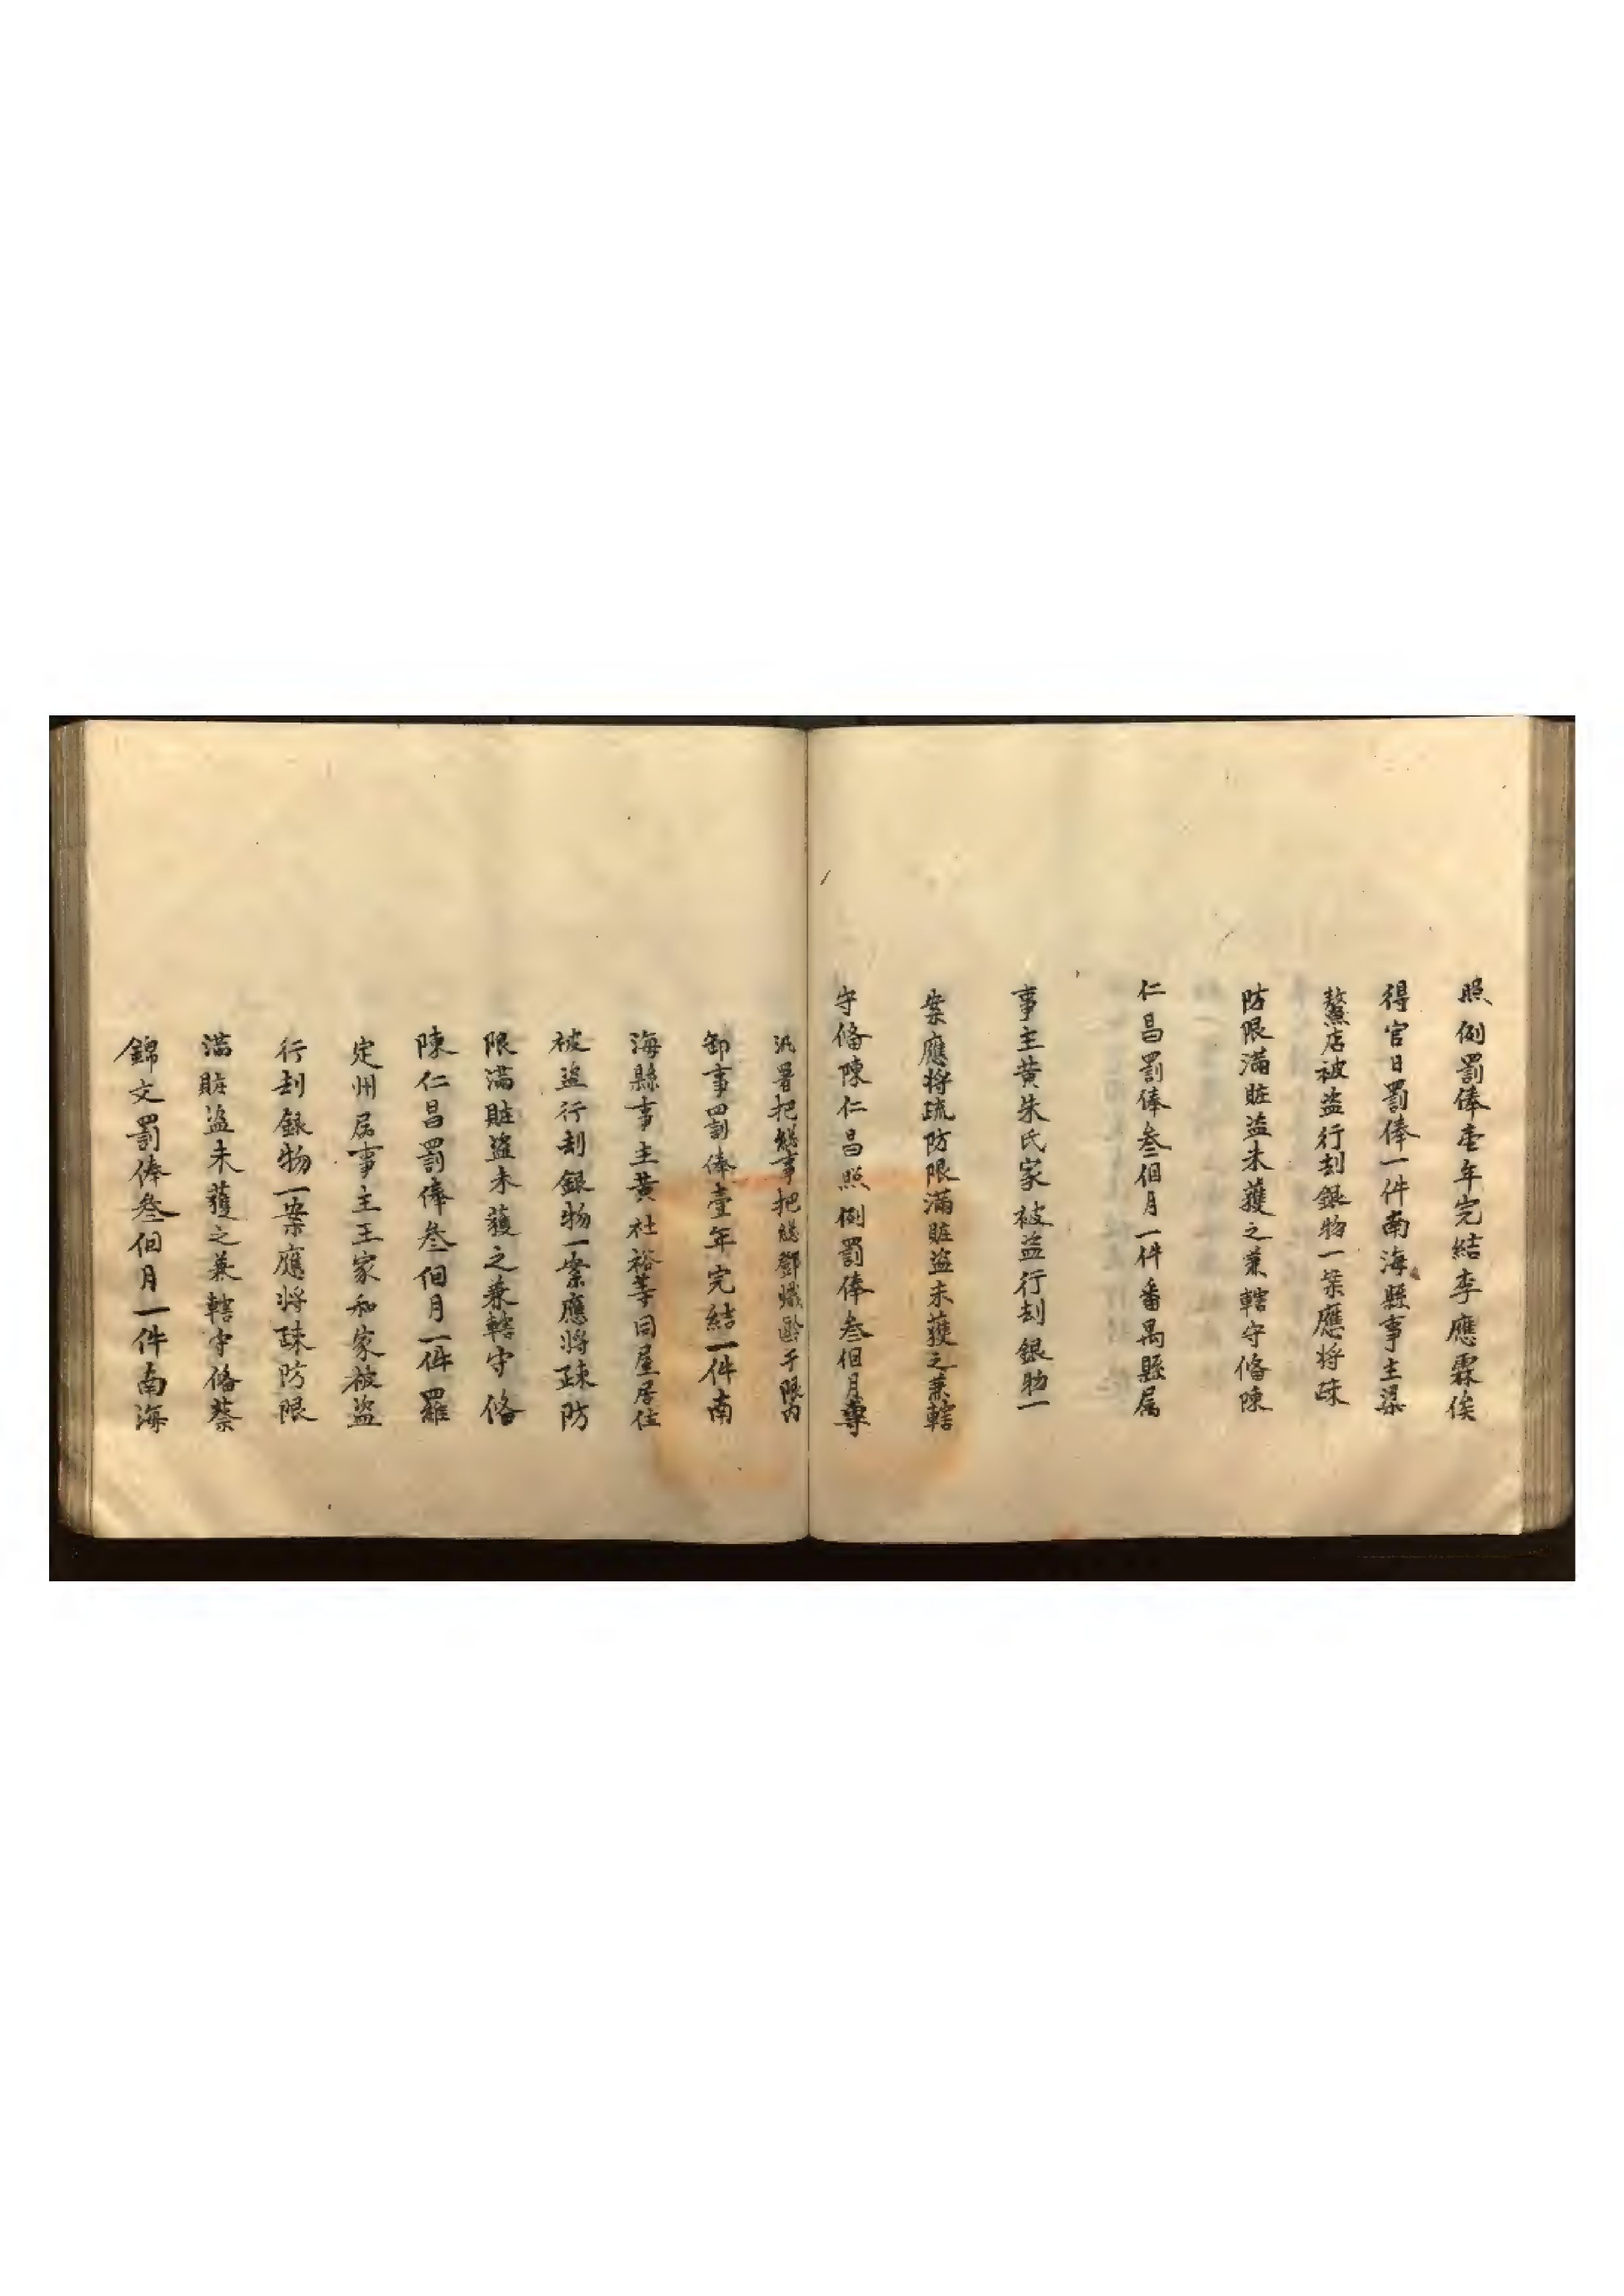 照例罰俸壹年完結李應霖俟
得官日罰俸一件南海縣事主梁
鰲店被盗行刦銀物一案應将疎
防限滿賍盗未獲之兼轄守俻陳
仁昌罰俸叁個月一件番禺縣属
事主黄朱氏家被盗行刦銀物一
案應将疏防限滿賍盗未獲之兼轄
守俻陳仁昌照例罰俸叁個月專
汛署把緫事把緫鄧熾齡于限内
卸事罰俸壹年完結一件南
海縣事主黄社裕等同屋居住
被盗行刦銀物一案應將疎防
限滿賍盗未獲之兼轄守俻
陳仁昌罰俸叁個月一件羅
定州属事主王家和家被盗
行刦銀物一案應将疎防限
滿賍盗未獲之兼轄守俻蔡
錦文罰俸叁個月一件南海